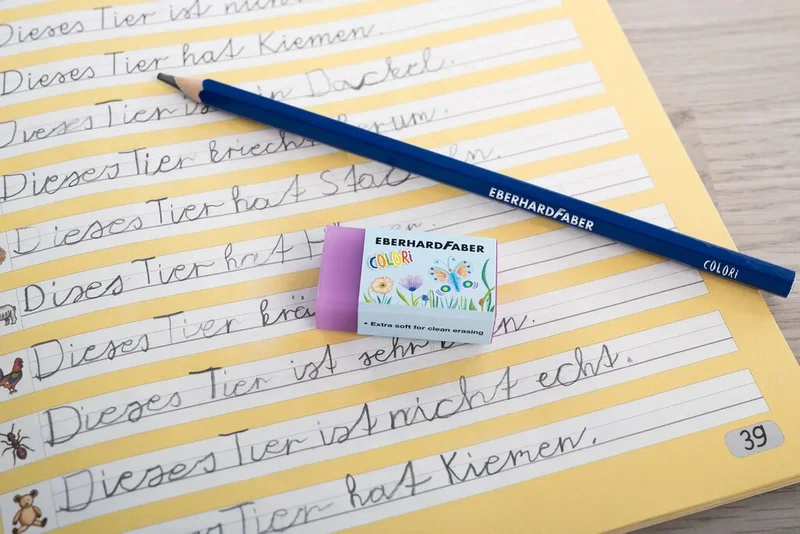 Dieses Tier ist
Dieses Tier hat Kiemen.
Dieses Tier in Dackel.
Dieses Tier kriecht herum.
Dieses Tier hat
Dises Tier hat
Dieses Tier
Dieses Tier ist sehr
Dieses Tier ist nicht echt.
Tier hat Kiemen.
EBERHARDFABER
COLORi
EBERHARDFABER
COLORi
• Extra soft for clean erasing
39